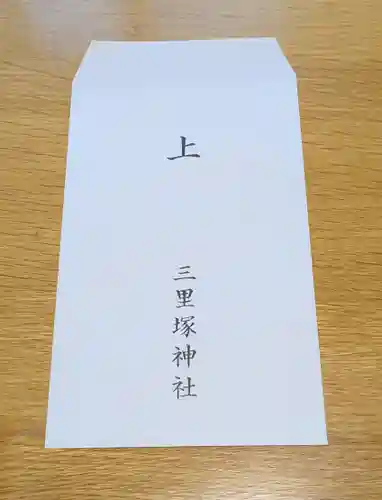 上
三里塚神社